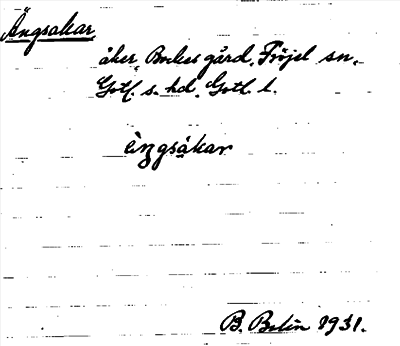 Ängsakar
åker, Bockes gård, Fröjel sn.
Gotl. s. hd. Gotl. l.
èŋgsákar
B. Bolin 1931.